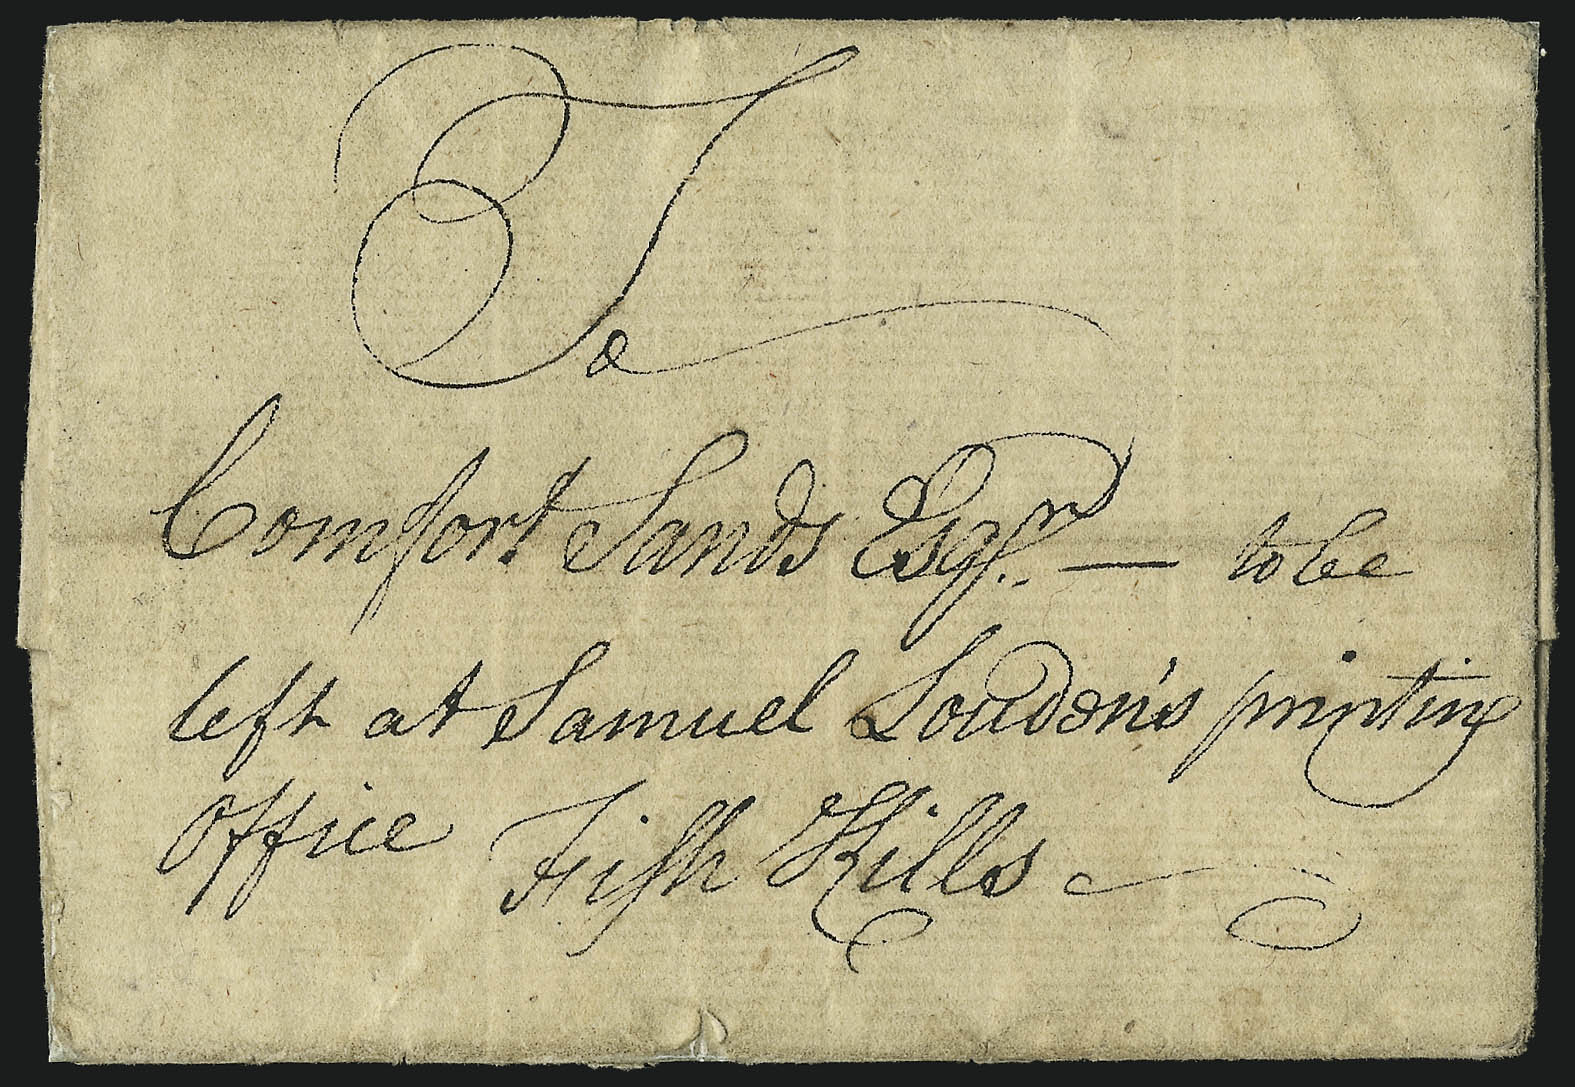 To
Comfort Sands Esqr. — to be
left at Samuel Loudon's printing
Office Fish Kills